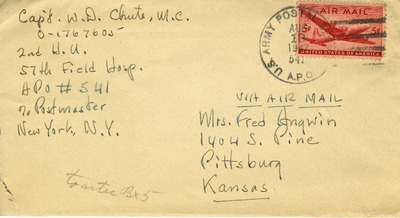 Capt. W.D. Chute, M.C.
O-1767605
2nd H.U.
57th Field Hosp.
APO # 541
% Postmaster
New York, N.Y.
U.S. ARMY POSTAL
AUG
541
A.P.O.
AIR MAIL
5¢
UNITED STATES OF AMERICA
VIA AIR MAIL
Mrs. Fred Angwin
1404 S. Pine
Pittsburg
Kansas.
Box 5